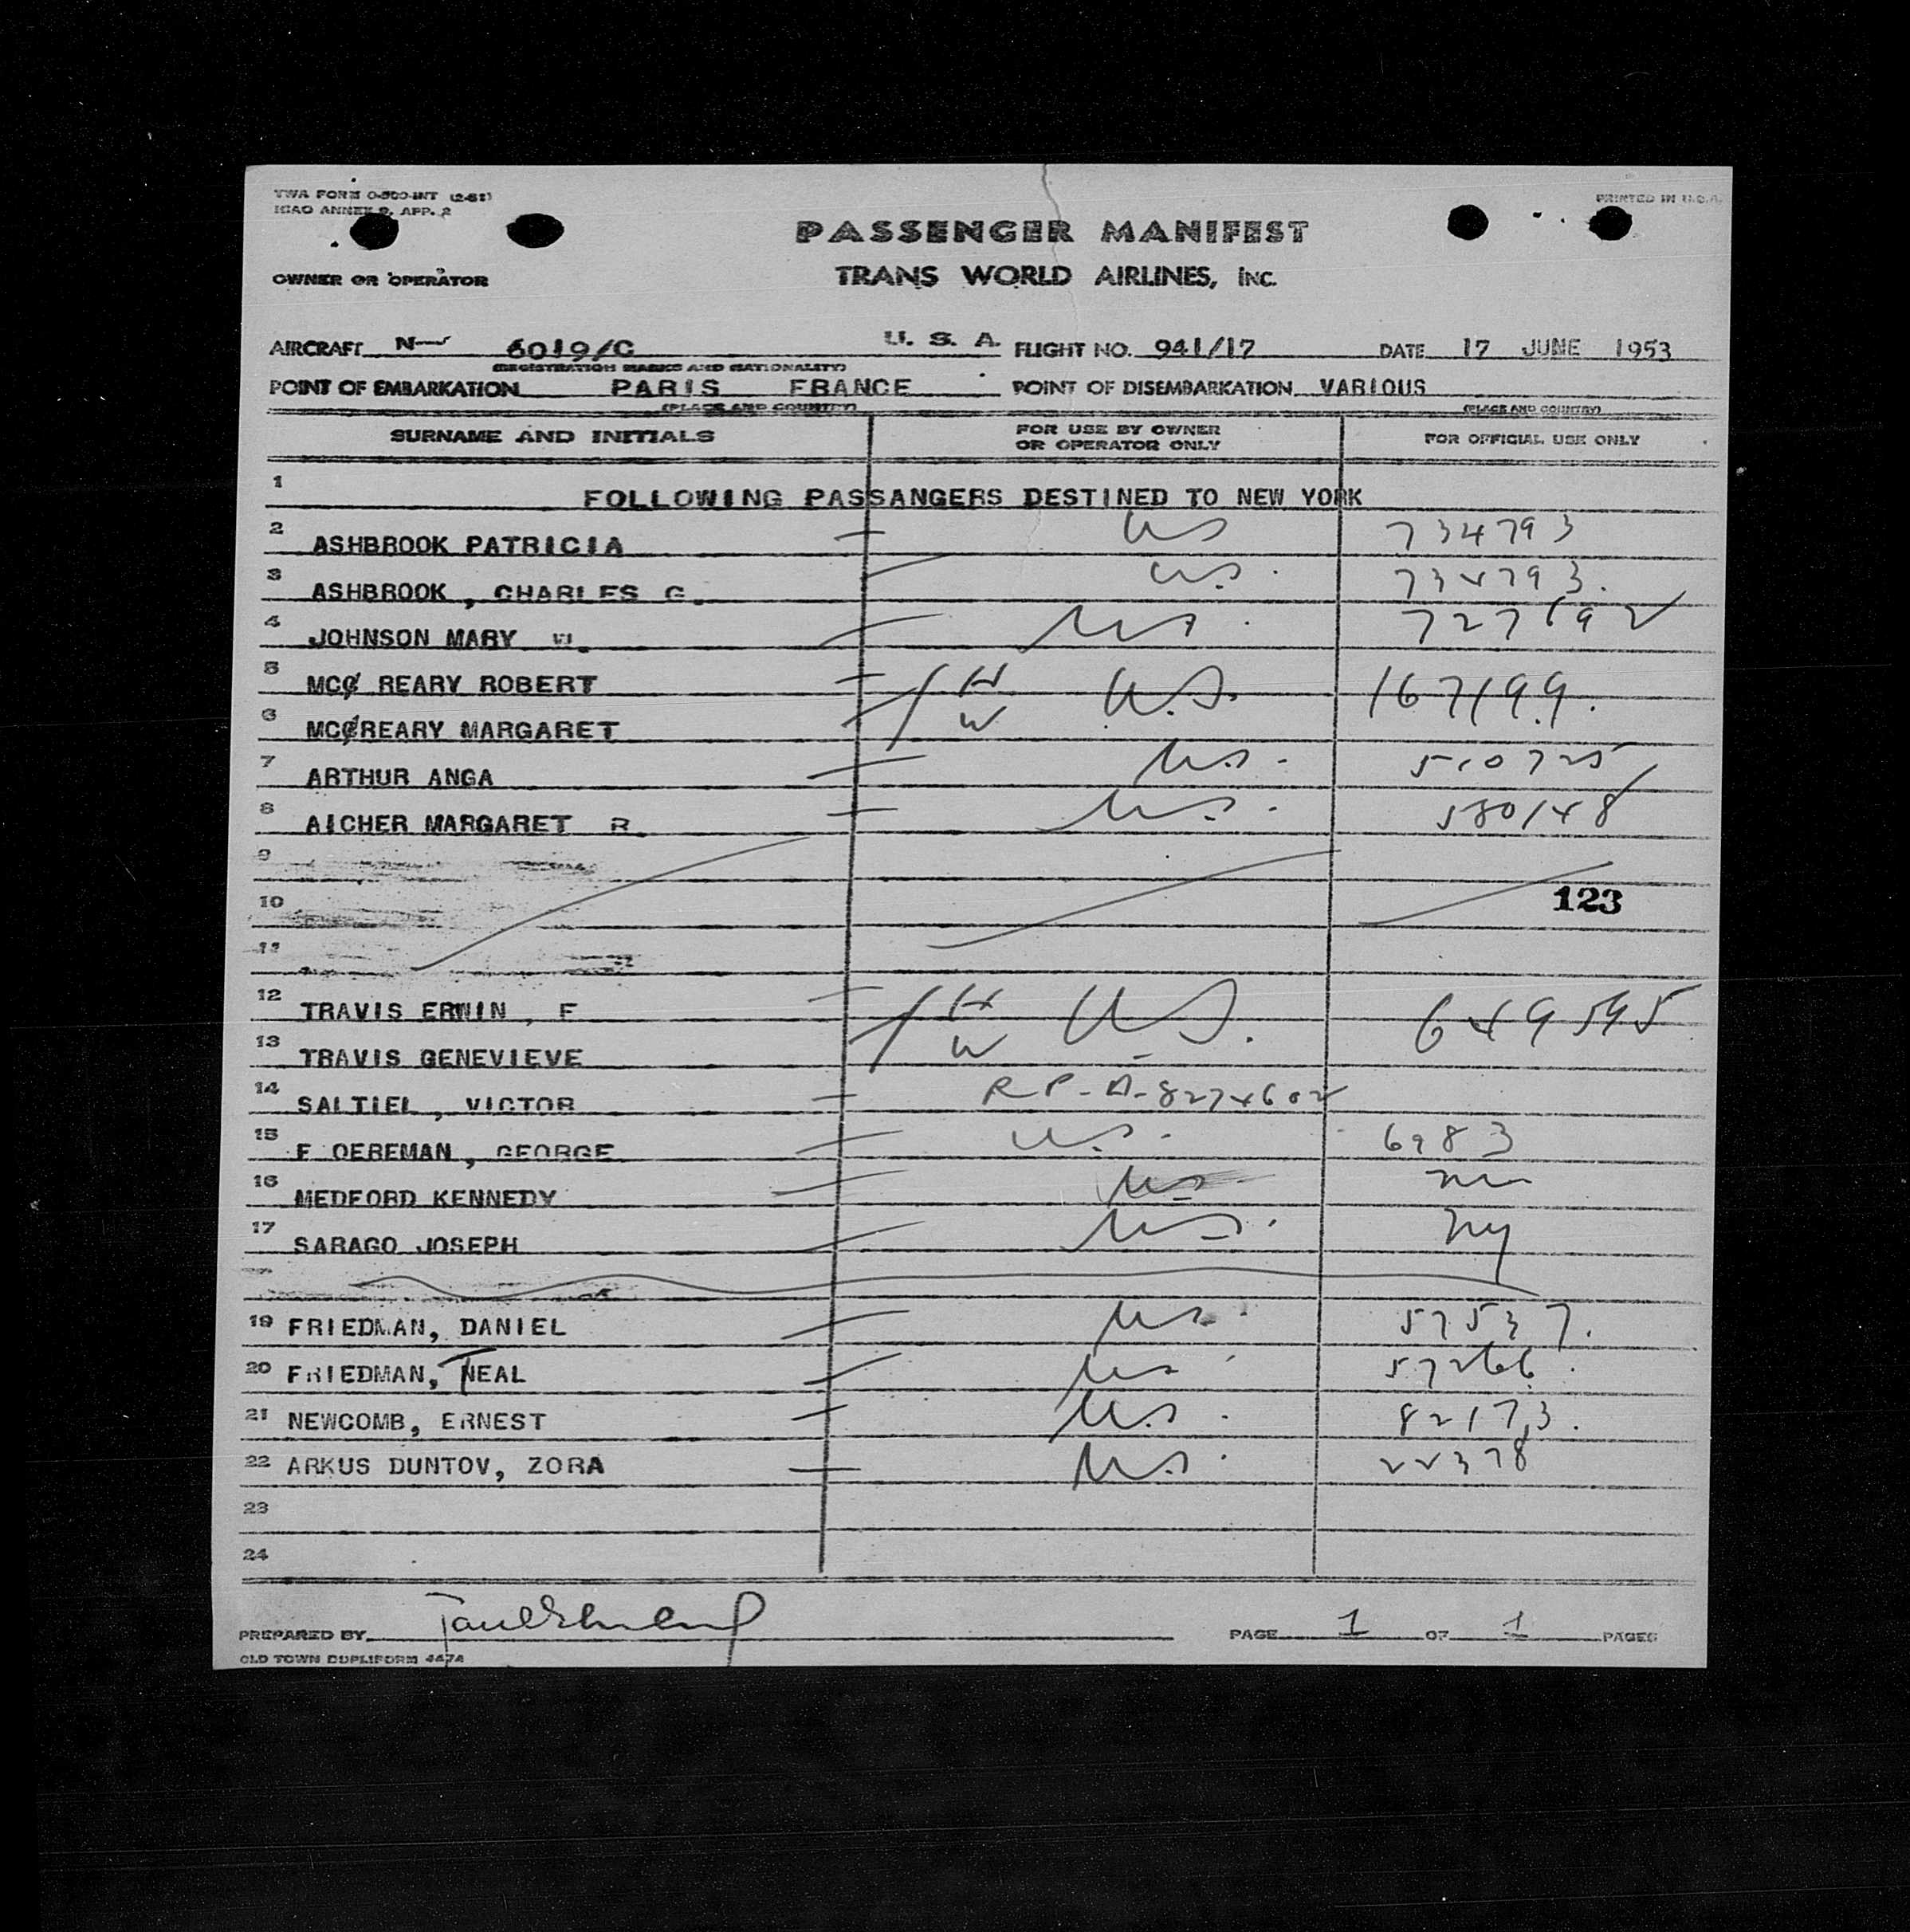 TWA FORM O-500-INT (2-51)
ICAO ANNEX 9, APP. 2
PRINTED IN U.S.A.
PASSENGER MANIFEST
OWNER OR OPERATOR
TRANS WORLD AIRLINES, INC.
AIRCRAFT N— 6019/C U. S. A. FLIGHT NO. 941/17 DATE 17 JUNE 1953
(REGISTRATION MARKS AND NATIONALITY)
POINT OF EMBARKATION PARIS FRANCE POINT OF DISEMBARKATION VARIOUS
(PLACE AND COUNTRY) (PLACE AND COUNTRY)
SURNAME AND INITIALS FOR USE BY OWNER OR OPERATOR ONLY FOR OFFICIAL USE ONLY
1 FOLLOWING PASSANGERS DESTINED TO NEW YORK
2 ASHBROOK PATRICIA US 734793
3 ASHBROOK , CHARLES G. U.S. 734793.
4 JOHNSON MARY W. US. 727692
5 MCC REARY ROBERT H U.S. 167199.
6 MCCREARY MARGARET W
7 ARTHUR ANGA U.S. 510725
8 AICHER MARGARET R. U.S. 580148
9
10 123
11
12 TRAVIS ERWIN , F H U.S. 649595
13 TRAVIS GENEVIEVE W
14 SALTIEL , VICTOR R P - A-8274602
15 F OEREMAN , GEORGE U.S. 6983
16 MEDFORD KENNEDY US
17 SARAGO JOSEPH U.S. NY
19 FRIEDMAN, DANIEL US. 57537.
20 FRIEDMAN, TNEAL US 57266.
21 NEWCOMB, ERNEST U.S. 82173.
22 ARKUS DUNTOV, ZORA U.S. 22378
23
24
PREPARED BY PAGE 1 OF 1 PAGES
OLD TOWN DUPLIFORM 4474